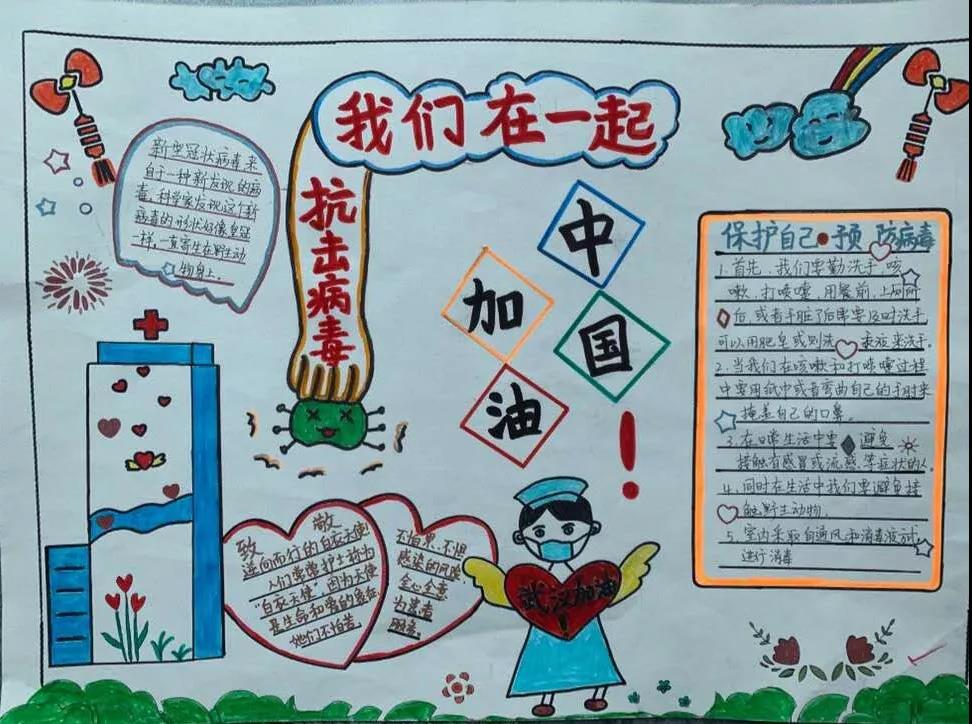 我们在一起
抗击病毒
新型冠状病毒来
自于一种新发现的病
毒,科学家发现这个新
病毒的形状好像皇冠
一样,一直寄生在野生动
物身上。
中
国
加
油
!
保护自己·预防病毒
1.首先,我们要勤洗手,咳
嗽,打喷嚏,用餐前,上厕所
后,或者手脏了后都要及时洗手
可以用肥皂或则洗手液来洗手。
2.当我们在咳嗽和打喷嚏过程
中要用纸巾或者弯曲自己的手肘来
掩盖自己的口鼻。
3.在日常生活中要避免
接触有感冒或流感等症状的人
4.同时在生活中我们要避免接
触野生动物。
5.室内采取自通风和消毒液
进行消毒
致敬
逆向而行的白衣天使!
人们常常护士称为
"白衣天使",因为天使
是生命和爱的象征,
她们不怕苦、
不怕累、不惧
感染的风险,
全心全意
为患者
服务。
武汉加油
!